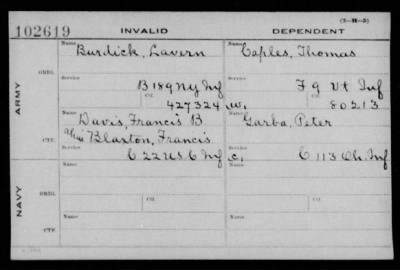 (3-H-5)
102619 INVALID DEPENDENT
Name Burdick, Lavern Name Caples, Thomas
ORIG.
Service B 189 N.Y. Inf Service F 9 Vt Inf
Ctf. 427324 W. Ctf. 80213
ARMY
Name Davis, Francis B Name Garba, Peter
Alias Blaxton, Francis
CTF.
Service C 22 U.S. C Inf C. Service C 113 Oh. Inf
Name Name
ORIG.
NAVY
Name Name
CTF.